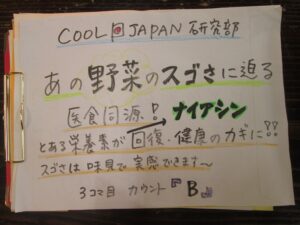 COOL JAPAN 研究部
あの野菜のスゴさに迫る
医食同源!! ナイアシン
とある栄養素が回復・健康のカギに!!
スゴさは味見で実感できます～
3コマ目 カウント『B』